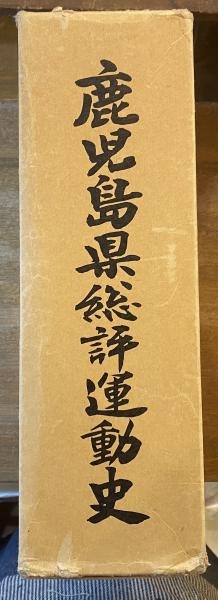 鹿児島県総評運動史